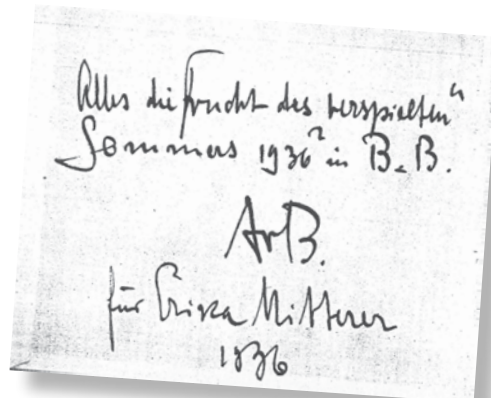 Alles die Frucht des verspielten"
Sommers 1936? in B. B.
ArB.
für Erika Mitterer
1936